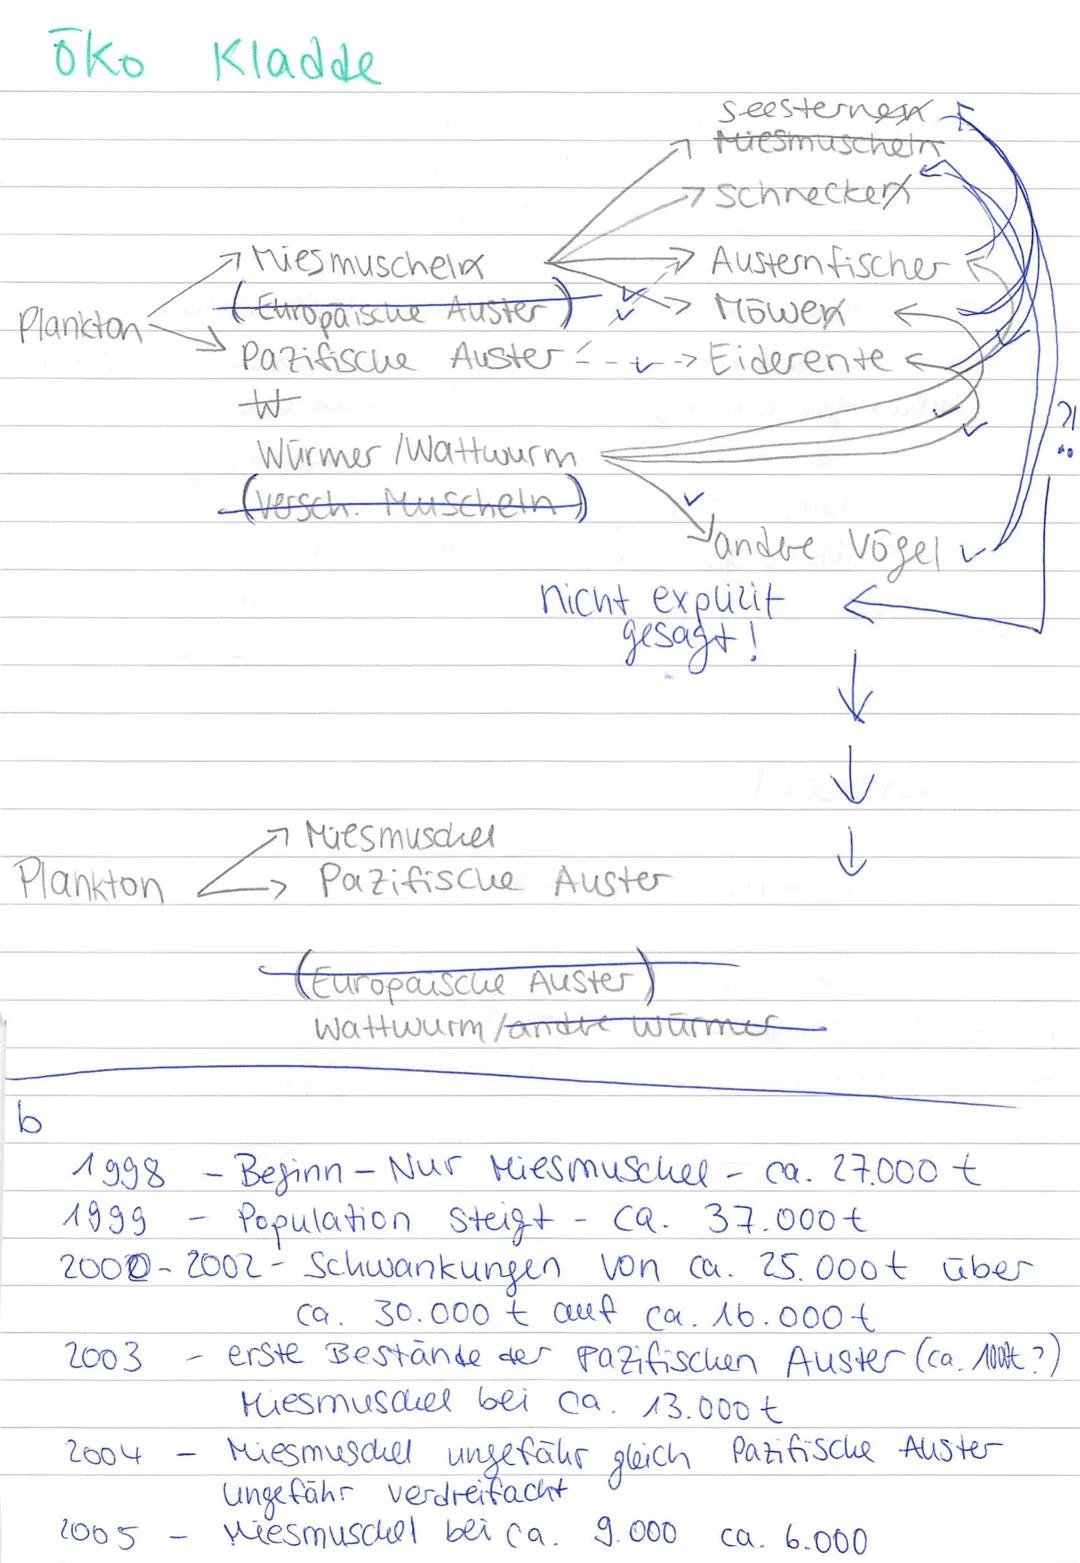 Öko Kladde
Seesterne
Miesmuscheln
Schnecken
Miesmuscheln
Austernfischer
(Europäische Auster)
Möwen
Plankton
Pazifische Auster
Eiderente
W
?!
Würmer/Wattwurm
(versch. Muscheln)
andere Vögel
nicht explizit
gesagt!
Miesmuschel
Plankton
Pazifische Auster
(Europäische Auster)
Wattwurm/andre Würmer
b
1998 - Beginn - Nur Miesmuschel - ca. 27.000 t
1999 - Population steigt - ca. 37.000 t
2000 - 2002 - Schwankungen von ca. 25.000 t über
ca. 30.000 t auf ca. 16.000 t
2003 - erste Bestände der Pazifischen Auster (ca. t?)
Miesmuschel bei ca. 13.000 t
2004 - Miesmuschel ungefähr gleich Pazifische Auster
ungefähr verdreifacht
2005 - Miesmuschel bei ca. 9.000 ca. 6.000